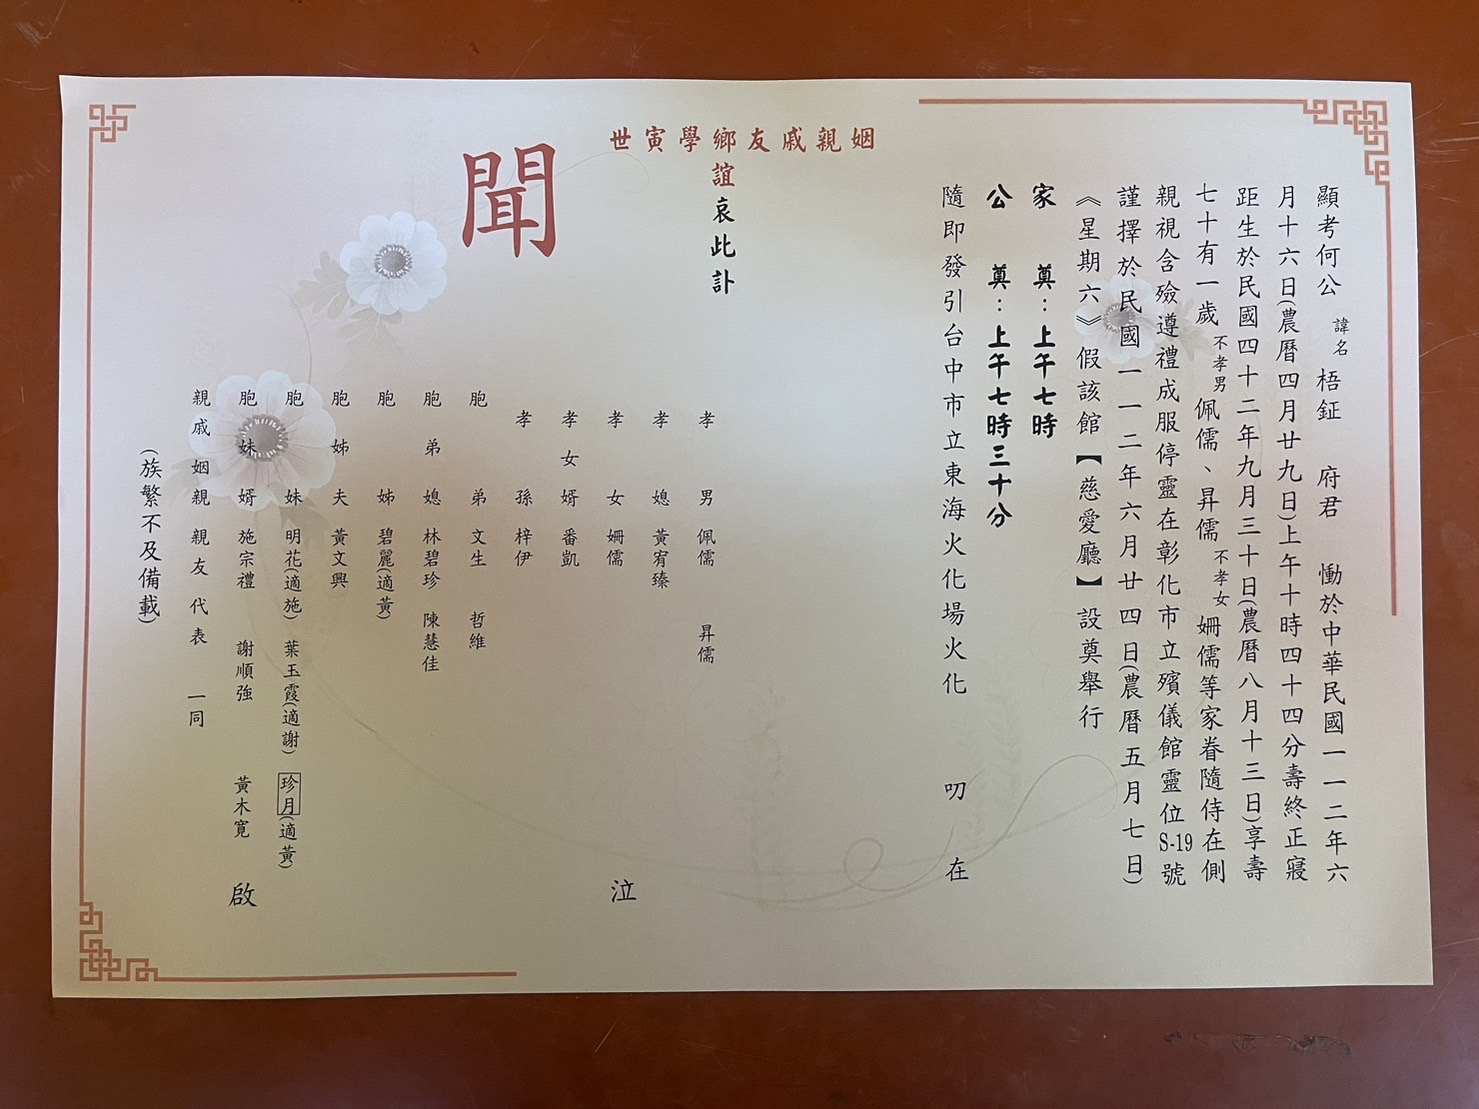 顯考何公 諱名 梧鉦 府君 慟於中華民國一一二年六
月十六日(農曆四月廿九日)上午十時四十四分壽終正寢
距生於民國四十二年九月三十日(農曆八月十三日)享壽
七十有一歲 不孝男 佩儒、昇儒 不孝女 姍儒等家眷隨侍在側
親視含殮遵禮成服停靈在彰化市立殯儀館靈位S-19號
謹擇於民國一一二年六月廿四日(農曆五月七日)
《星期六》假該館【慈愛廳】設奠舉行
家 奠:上午七時
公 奠:上午七時三十分
隨即發引台中市立東海火化場火化 叨 在
姻親戚友鄉學寅世
誼哀此訃
聞
孝 男 佩儒 昇儒
孝 媳 黃宥臻
孝 女 姍儒
孝女婿 番凱
孝 孫 梓伊
泣
胞 弟 文生 哲維
胞弟媳 林碧珍 陳慧佳
胞 姊 碧麗(適黃)
胞姊夫 黃文興
胞 妹 明花(適施) 葉玉霞(適謝) 珍月(適黃)
胞妹婿 施宗禮 謝順強 黃木寬
親戚姻親 親友代表 一同
啟
(族繁不及備載)